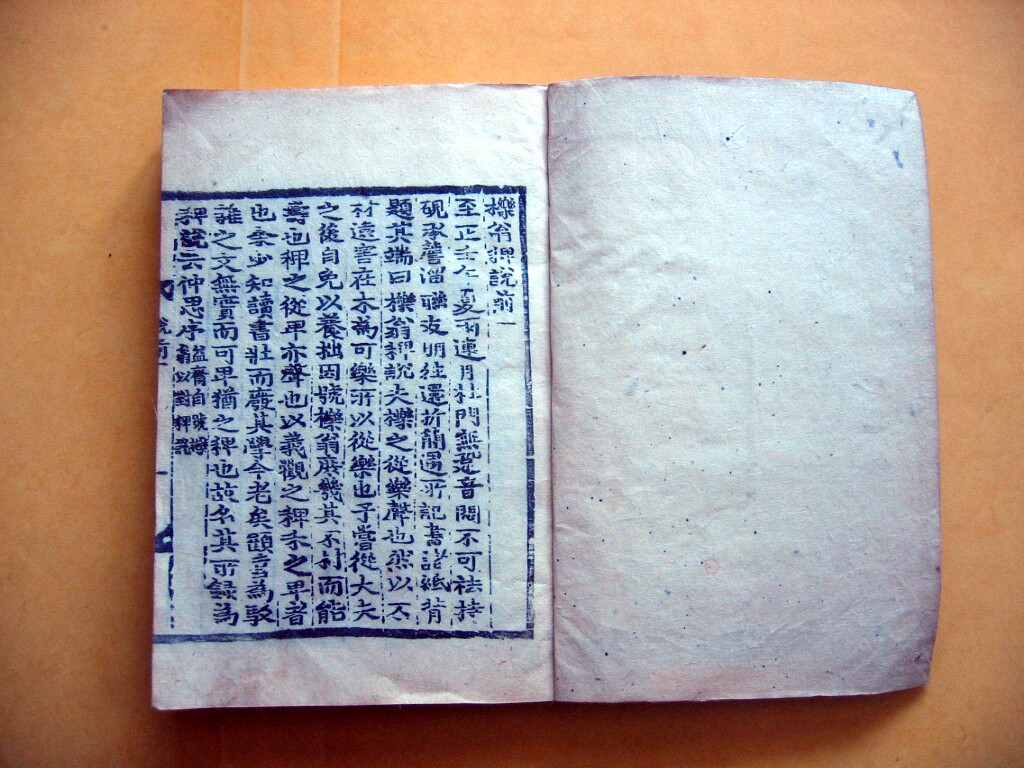 櫟翁稗說前一
至正壬午夏雨連月杜門無跫音悶不可袪持
硯承簷溜聯友朋往還折簡遇所記書諸紙背
題其端曰櫟翁稗說夫櫟之從樂聲也然以不
材遠害在木爲可樂所以從樂也予嘗從大夫
之後自免以養拙因號櫟翁庶幾其不材而能
壽也稗之從卑亦聲也以義觀之稗禾之卑者
也余少知讀書壯而廢其學今老矣顧喜爲駁
雜之文無實而可卑猶之稗也故名其所錄爲
稗說云仲思序
益齋自號櫟
翁以對稗說
說前一